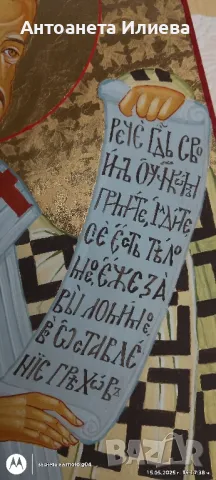 Антоанета Илиева
РЕЧЕ ГДЬ СВО
ИМЪ ОУЧЕНИ
ПРИМИТЕ, ЯДИТЕ
СЕ ЕСТЬ ТѢЛО
МОЕ, ЕЖЕ ЗА
ВЫ ЛОМИМОЕ
ВО ѠСТАВЛЕ
НІЕ ГРѢХОВЪ
BAZAR